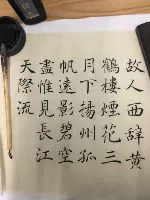 故人西辞黄
鶴樓煙花三
月下揚州孤
帆遠影碧空
盡惟見長江
天際流